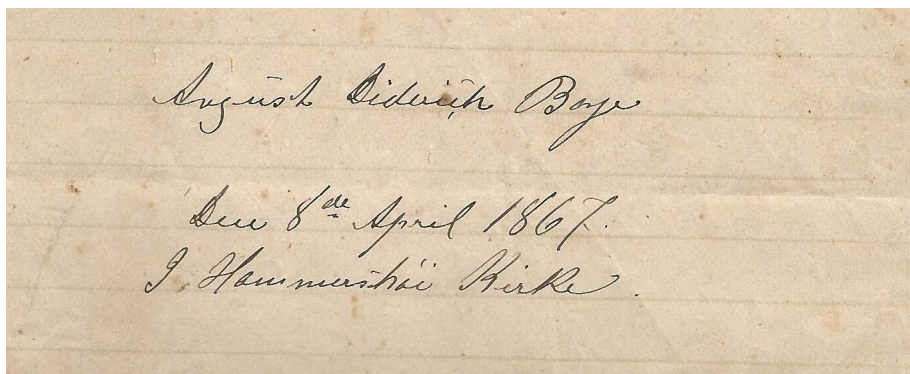 August Diderich Boye
Den 8de April 1867.
I Hammershøi Kirke.